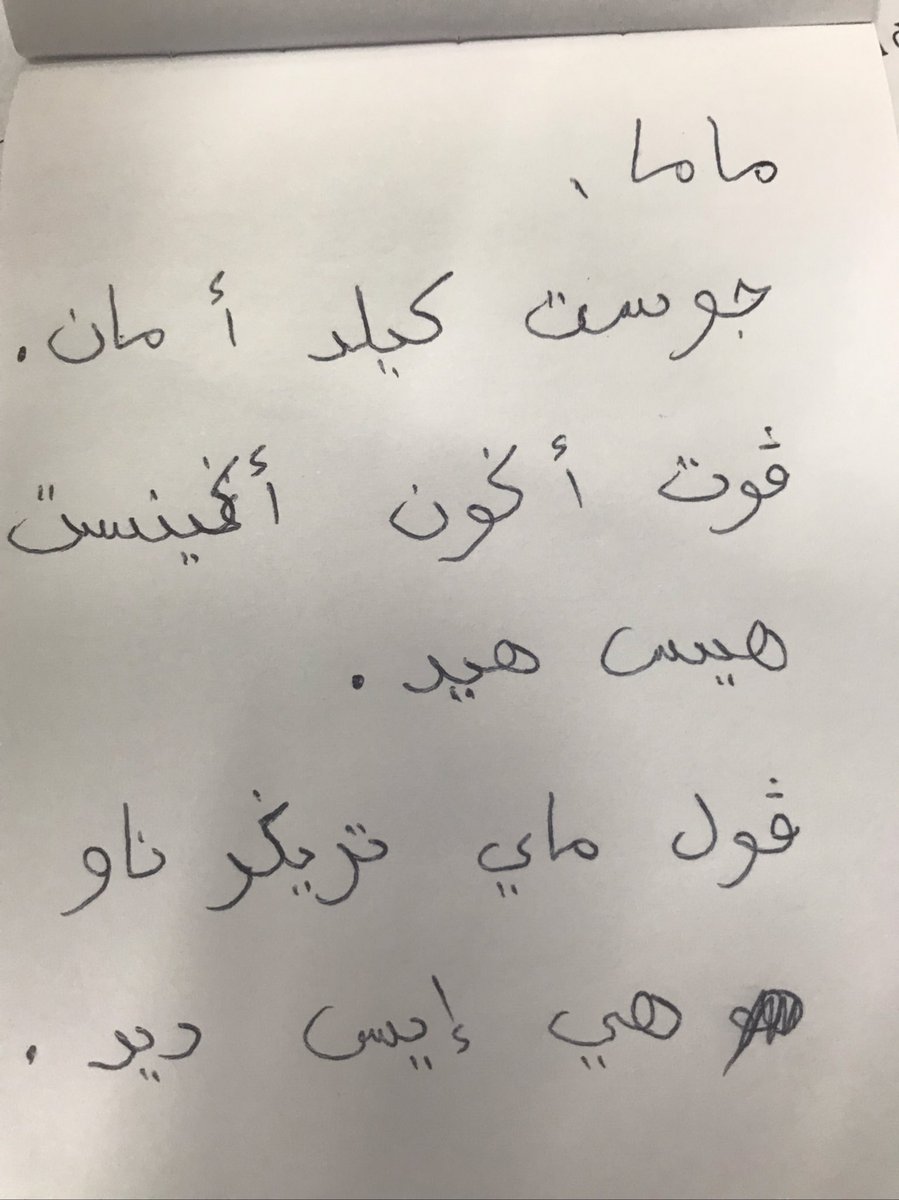 ماما،
جوست كيلد أ مان.
ڤوت أ ݢون أݢينست
هيس هيد.
ڤول ماي تريݢر ناو
هي إيس ديد.